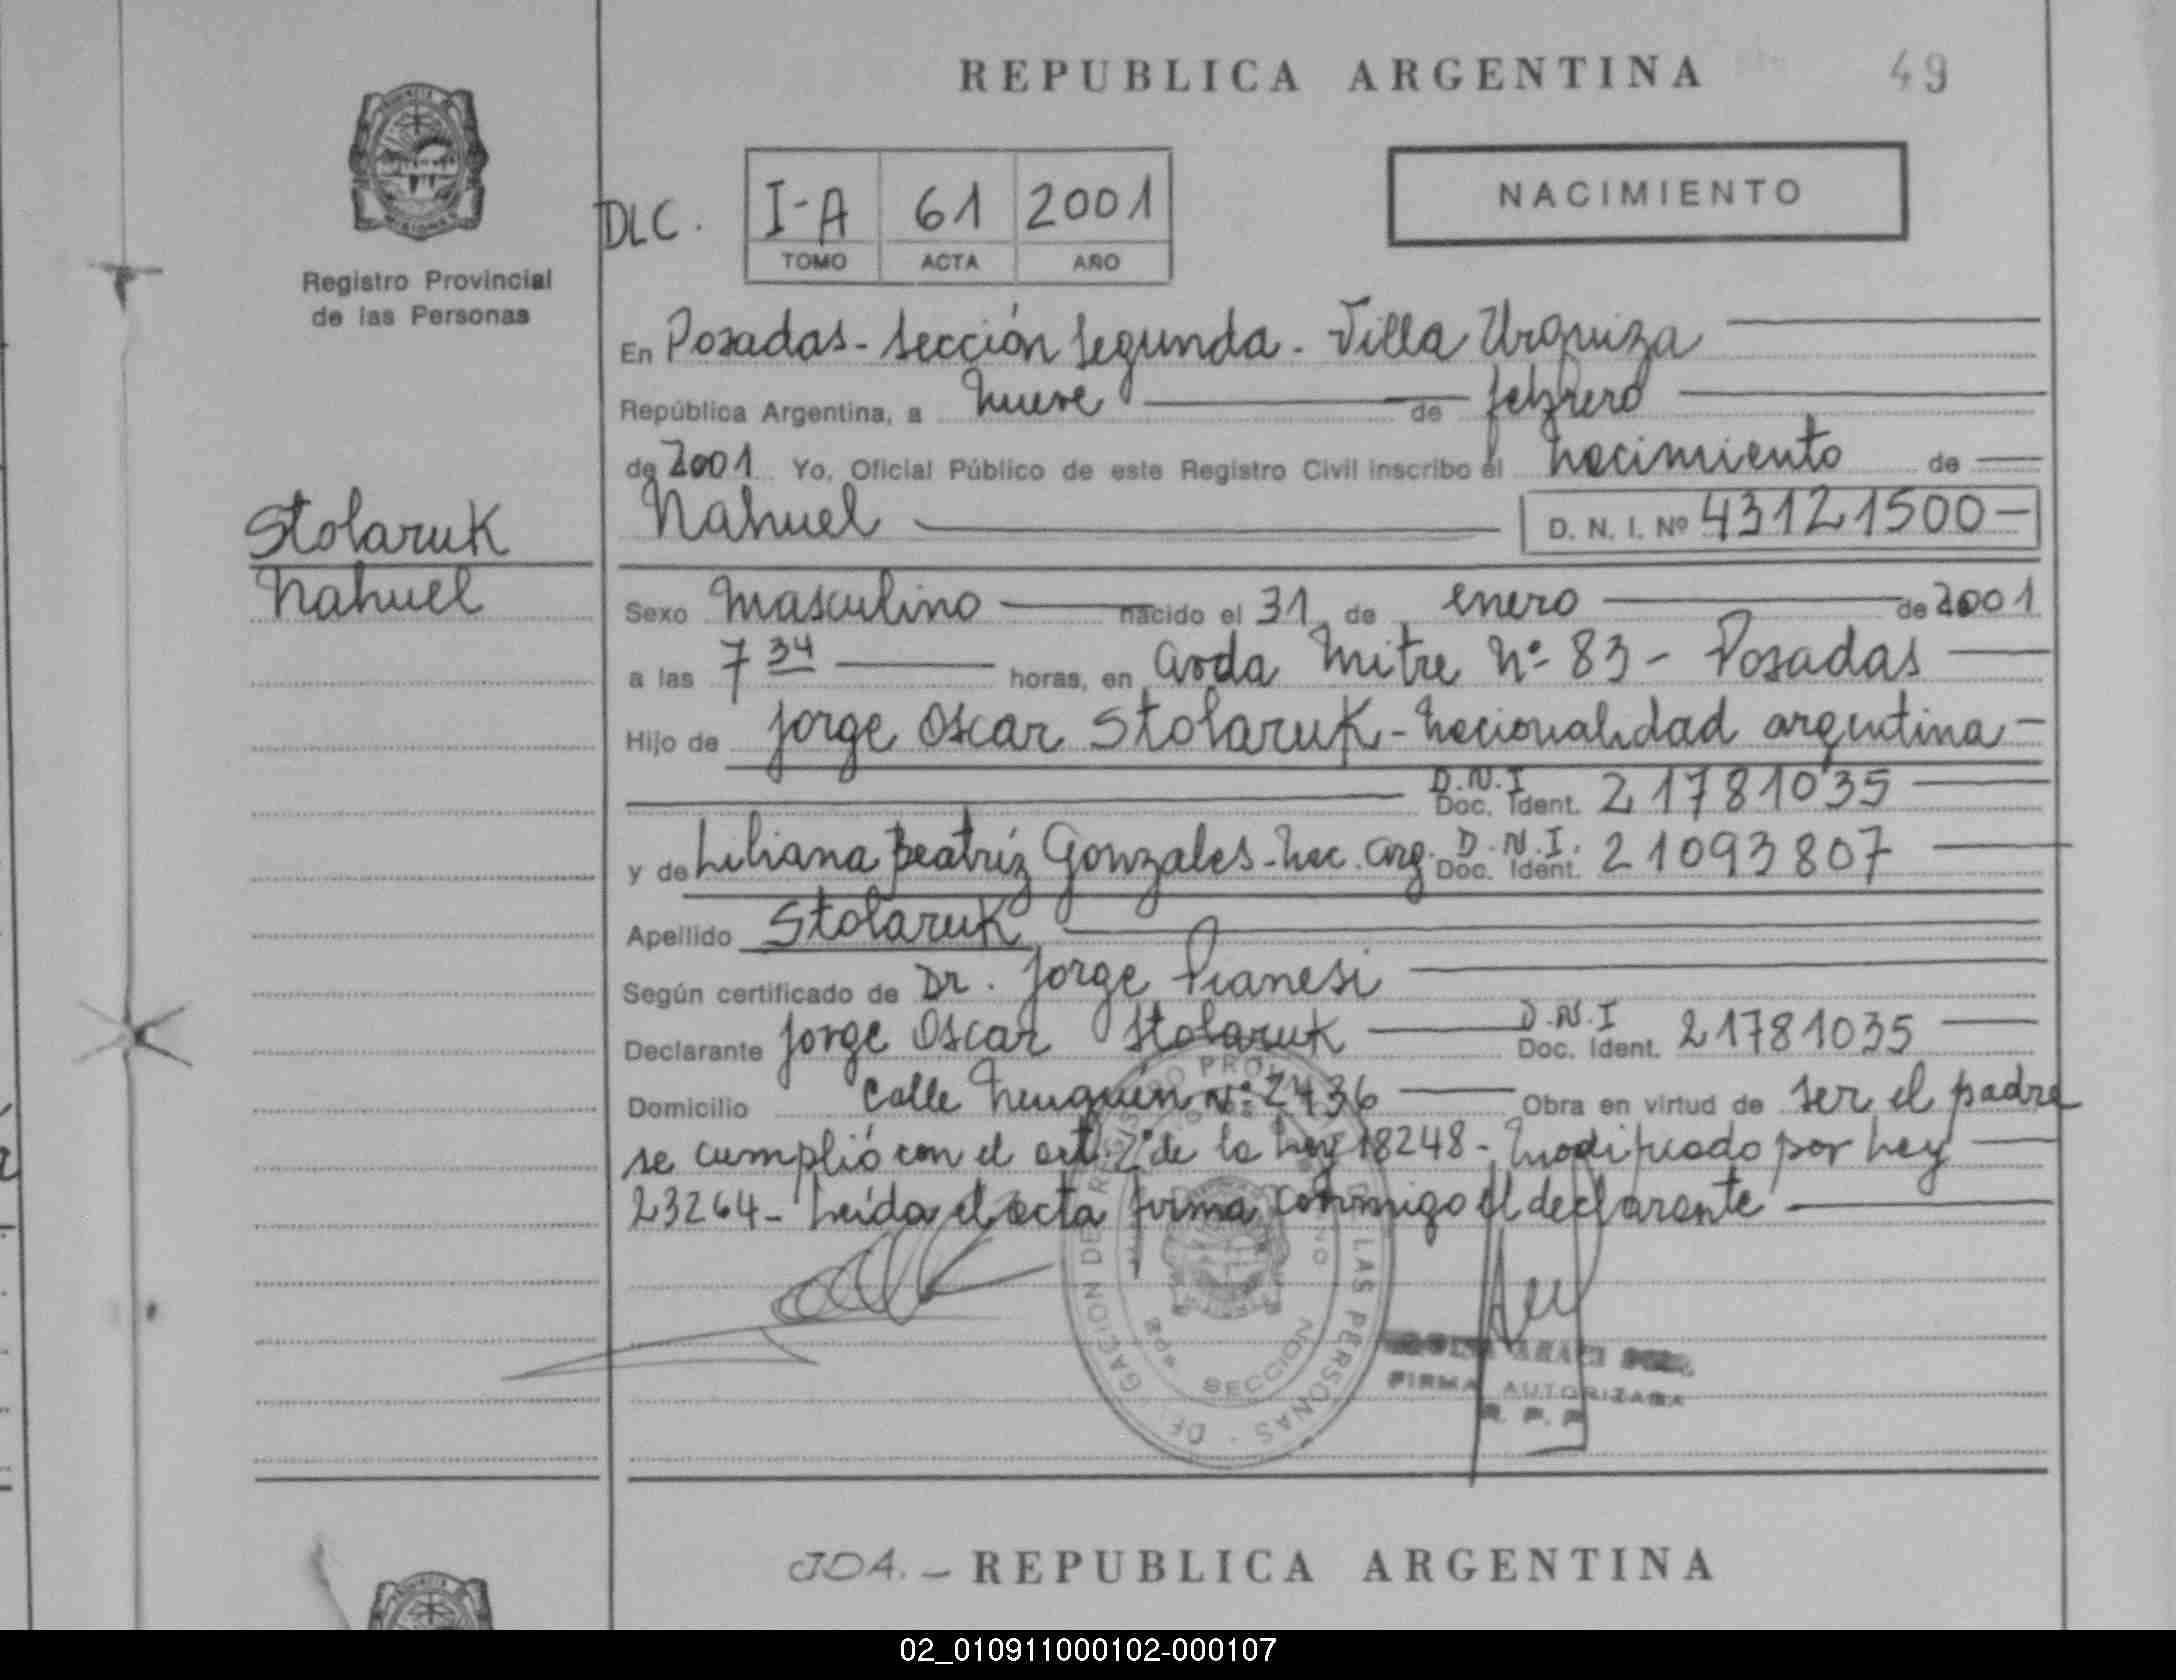 REPUBLICA ARGENTINA 49
Registro Provincial
de las Personas
DLC. I-A 61 2001
TOMO ACTA AÑO
NACIMIENTO
En Posadas - Sección Segunda - Villa Urquiza
República Argentina, a nueve de febrero
de 2001 Yo, Oficial Público de este Registro Civil inscribo el nacimiento de
Nahuel D. N. I. Nº 43121500-
Stolaruk
Nahuel
Sexo Masculino nacido el 31 de enero de 2001
a las 7 34 horas, en Avda Mitre Nº 83 - Posadas
Hijo de Jorge Oscar Stolaruk - Nacionalidad argentina -
D.N.I Doc. Ident. 21781035
y de Liliana Beatriz Gonzales - Nac. Arg. D.N.I. Doc. Ident. 21093807
Apellido Stolaruk
Según certificado de Dr. Jorge Pianesi
Declarante Jorge Oscar Stolaruk D.N.I Doc. Ident. 21781035
Domicilio Calle Neuquén Nº 2436 Obra en virtud de ser el padre
se cumplió con el art. 2º de la Ley 18248 - Modificado por Ley
23264 - Leída el acta firma conmigo el declarante
DELEGACION DE REGISTRO PROVINCIAL DE LAS PERSONAS
SECCION
FIRMA AUTORIZADA
R. P. P
JDA. - REPUBLICA ARGENTINA
02_010911000102-000107